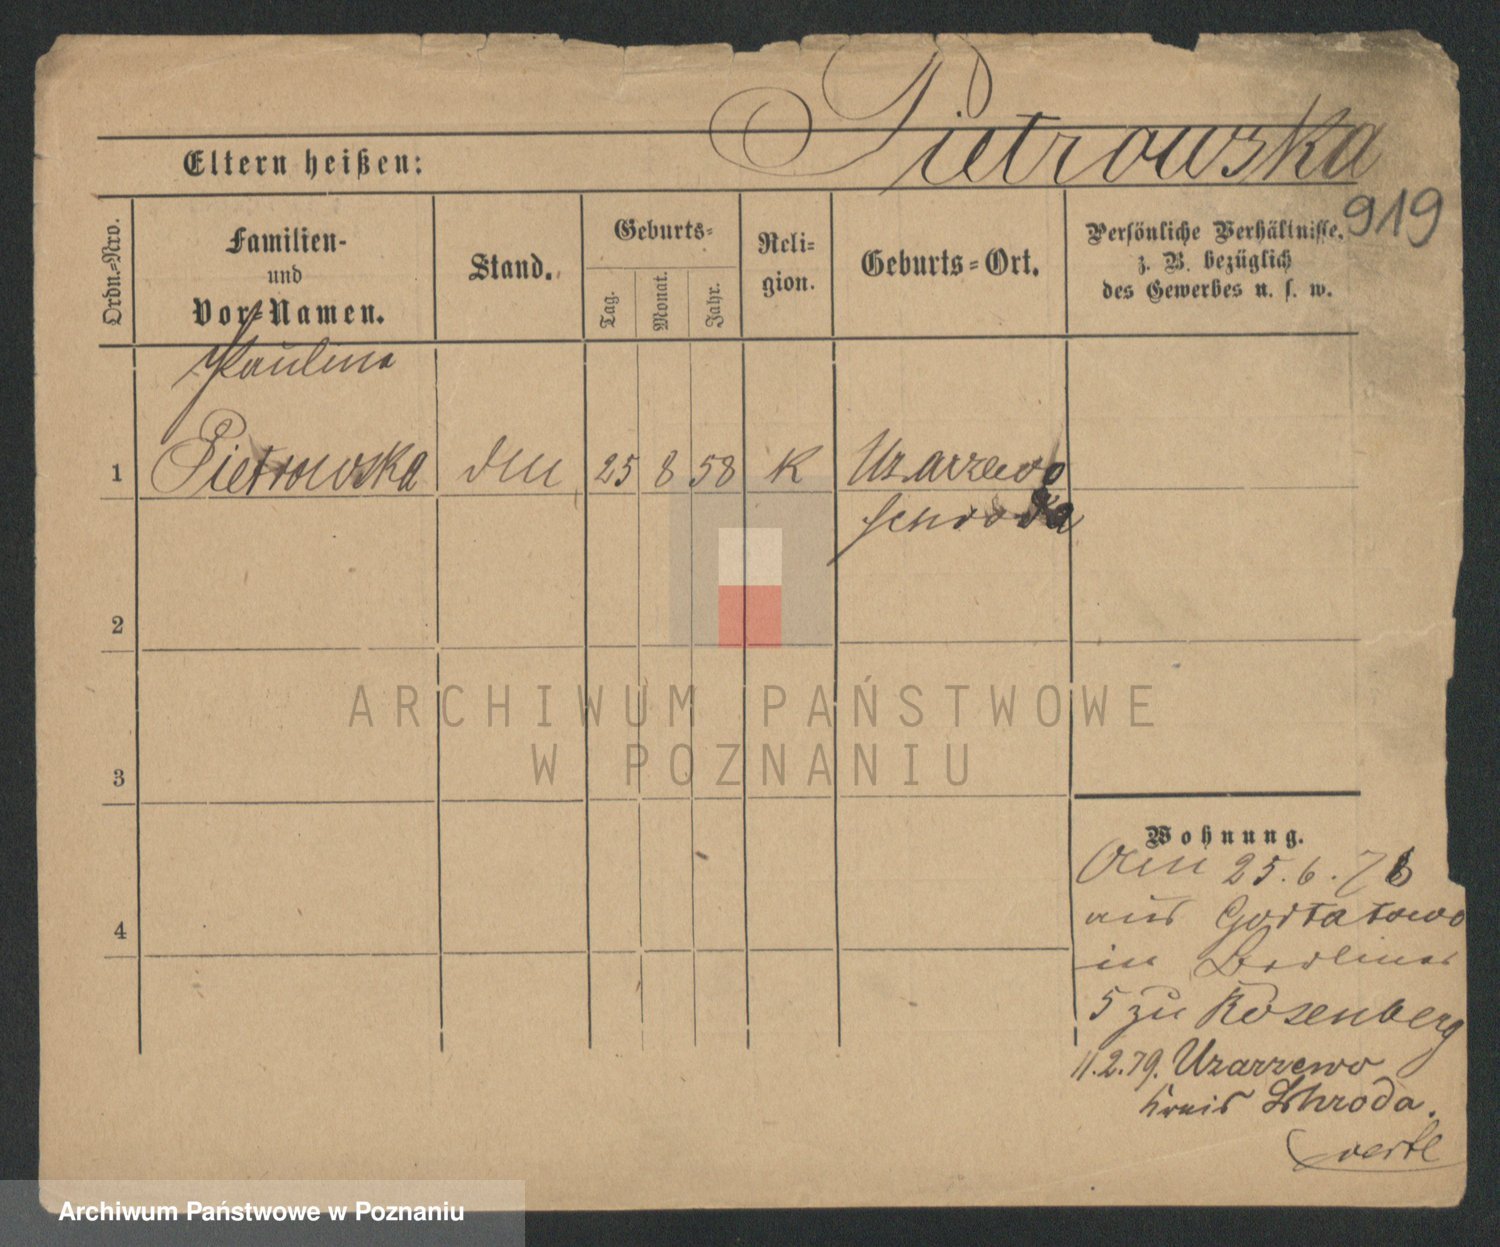 Pietrowska
Eltern heißen:
919
Ordn.-Nro.
Familien-
und
Vor-Namen.
Stand.
Geburts-
Tag.
Monat.
Jahr.
Reli-
gion.
Geburts-Ort.
Persönliche Verhältnisse,
z. B. bezüglich
des Gewerbes u. s. w.
Paulina
1 Pietrowska 25 8 58 K Uzarzewo
Schroda
2
ARCHIWUM PAŃSTWOWE
W POZNANIU
3
4
Wohnung.
25.6.78
aus Gortatowo
in Berliner
5 zu Rosenberg
11.2.79. Uzarzewo
Kreis Schroda.
verte
Archiwum Państwowe w Poznaniu